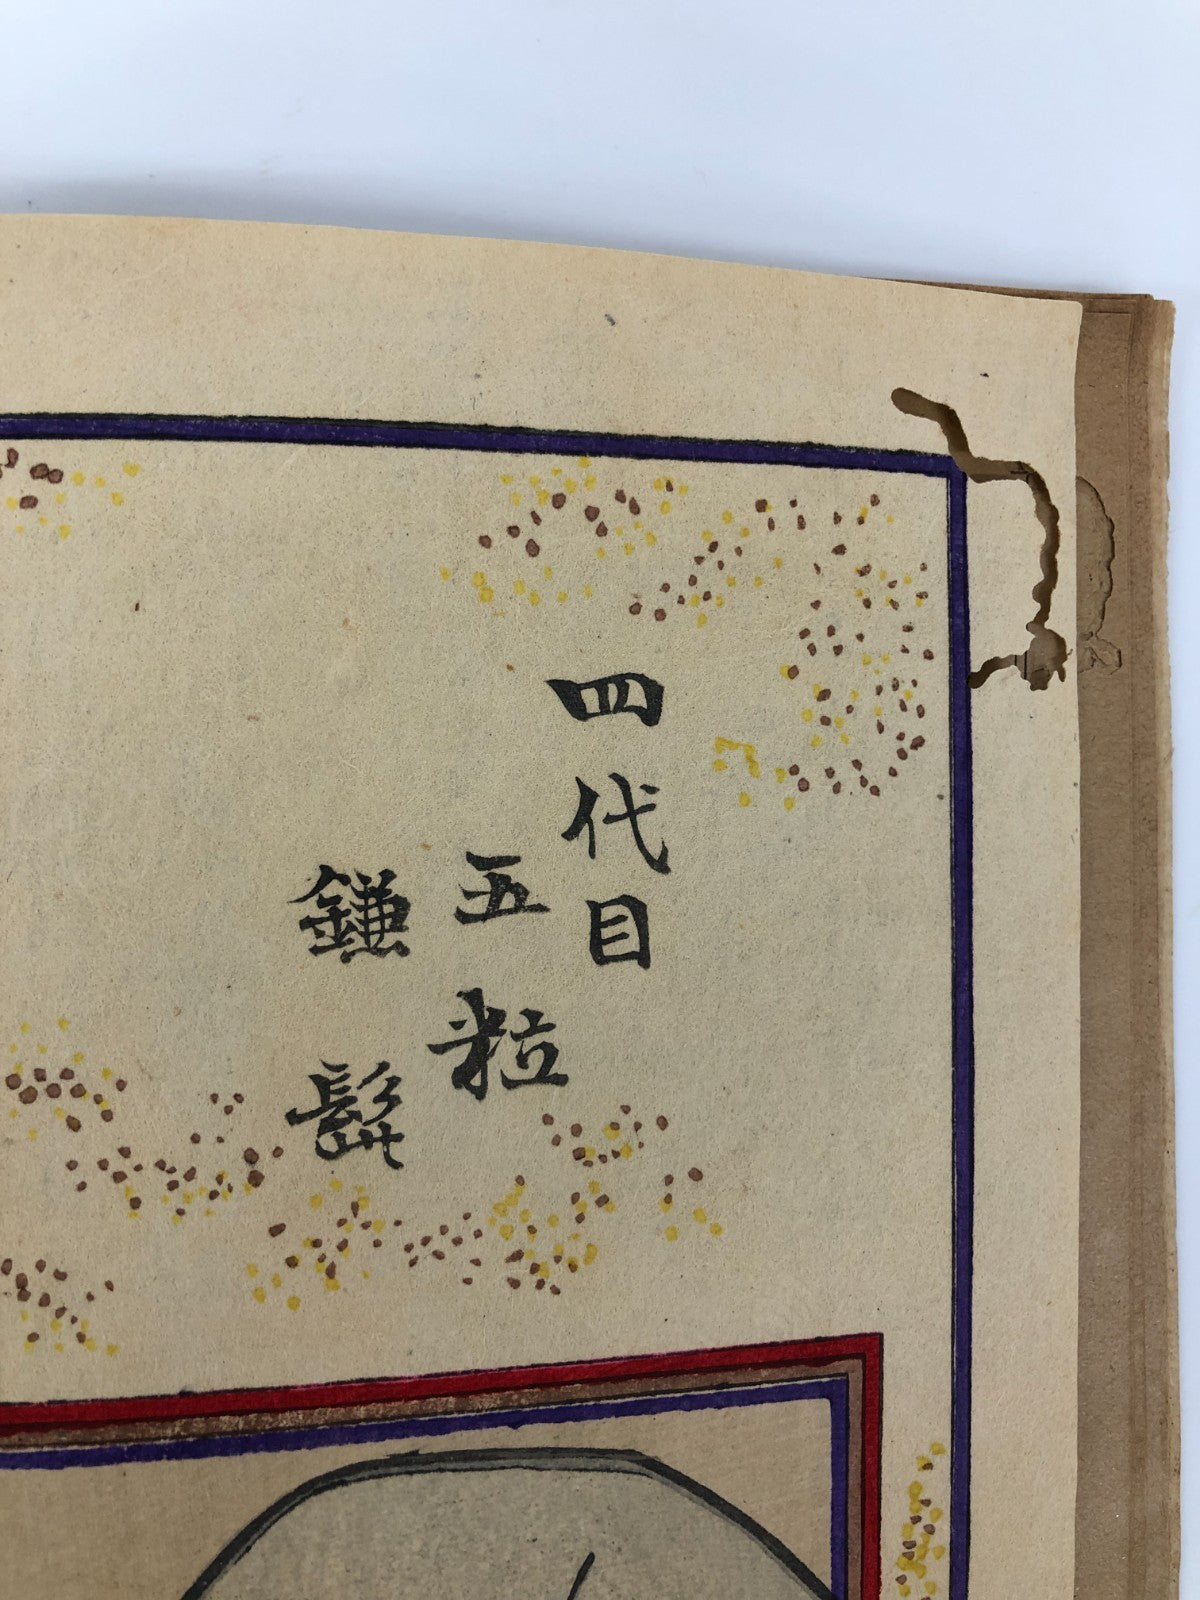 四代目
五粒
鎌髭